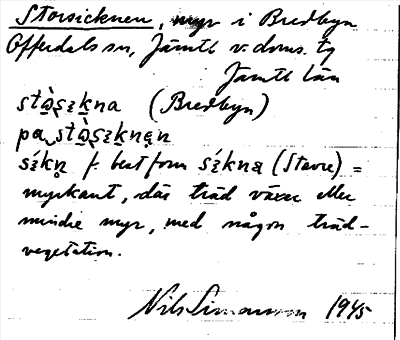 Storsicknen, myr i Bredbyn
Offerdals sn, Jämtl v. doms. tg
Jämtl län
stọ̀ṣzkna (Bredbyn)
pa stọ̀ṣzknęn
sízkn f. best form sízkna (Stavre) =
myrkant, där träd växer eller
mindre myr, med någon träd-
vegetation.
Nils Simonsson 1945